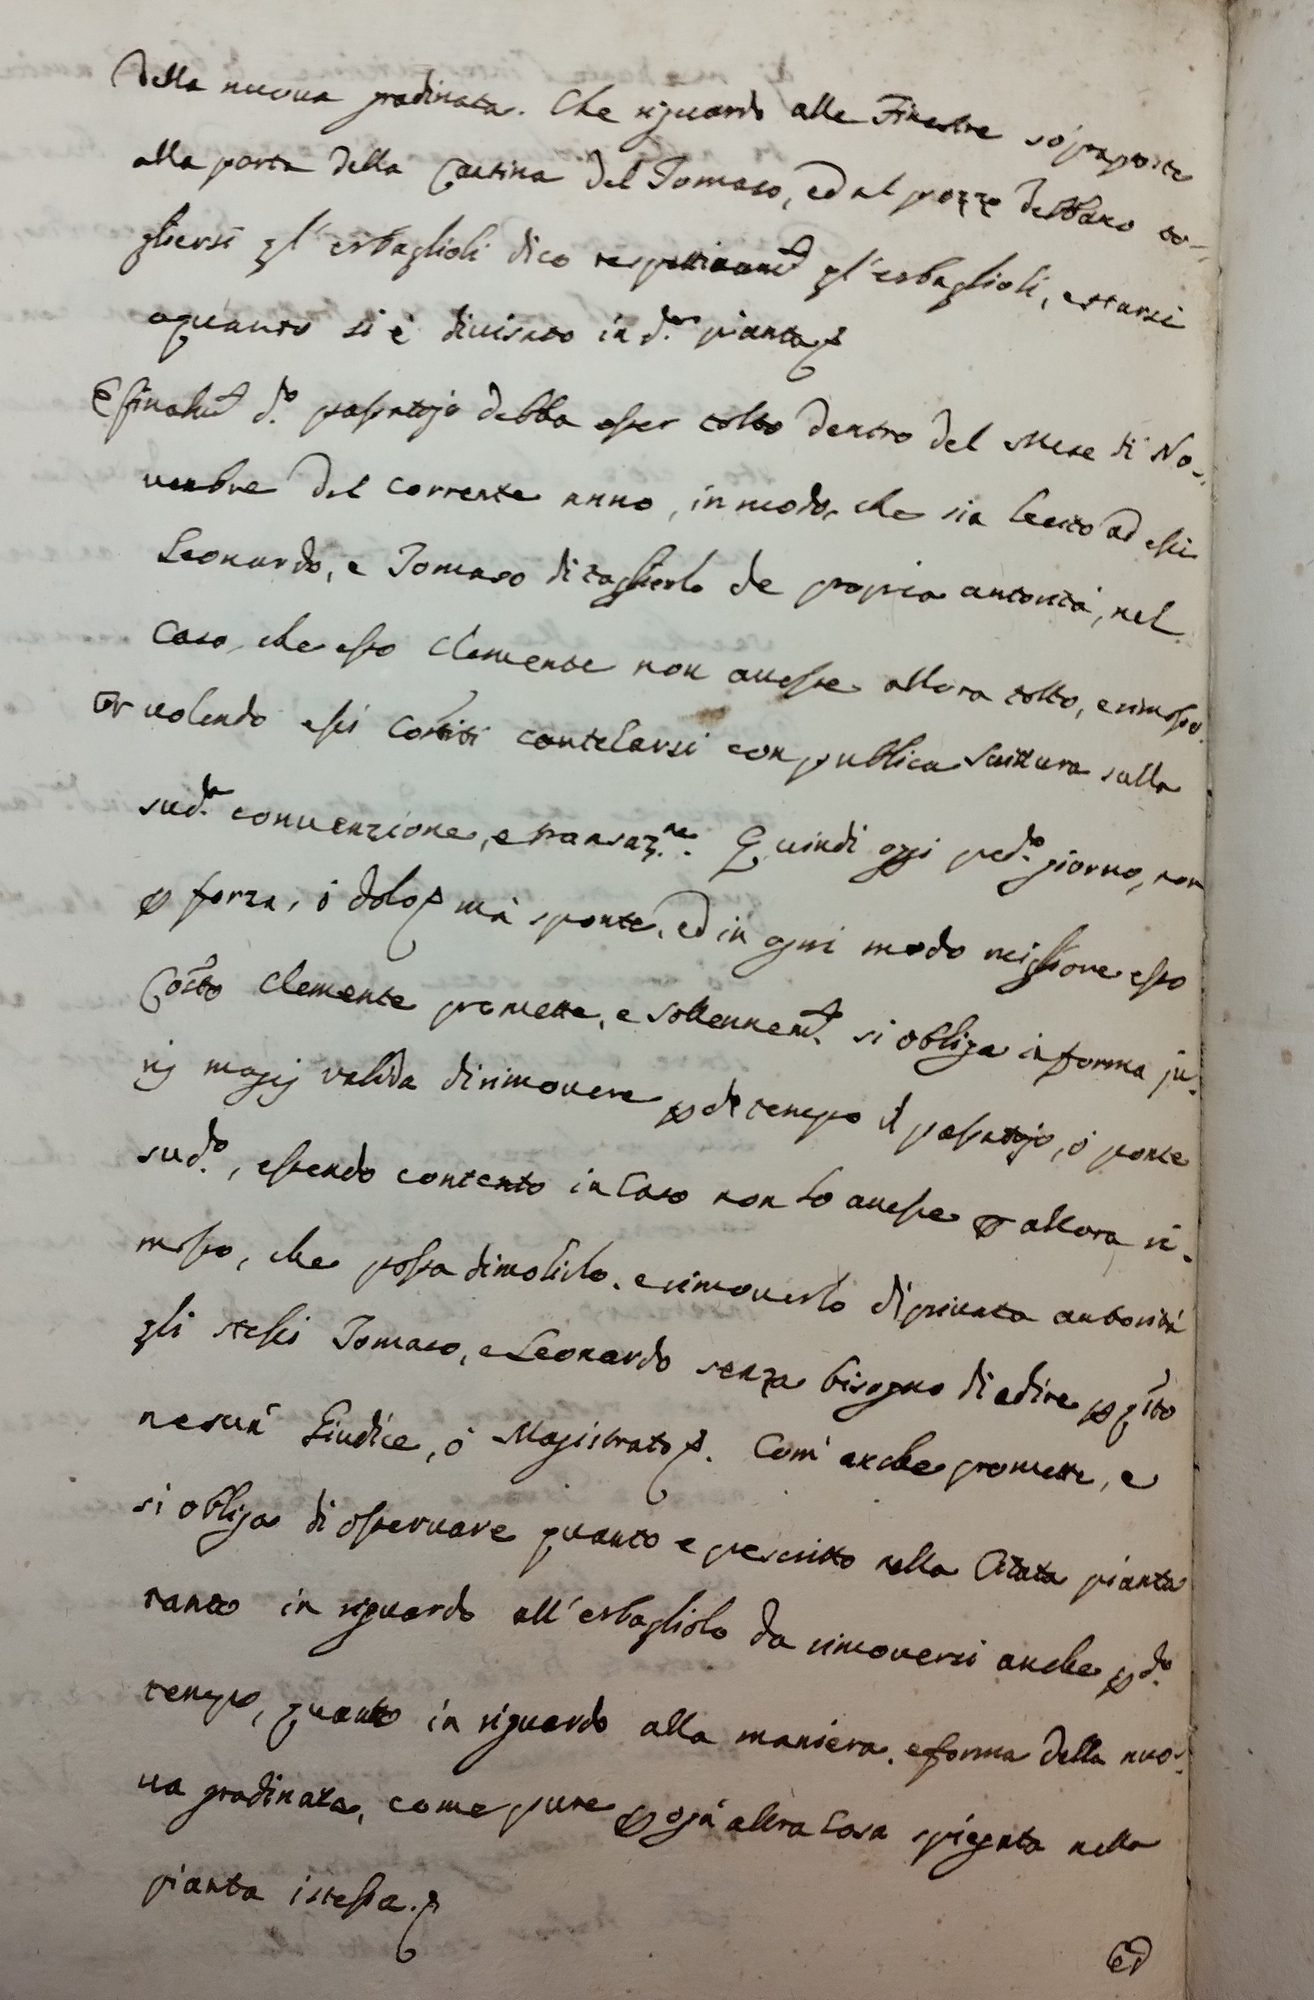 della nuova gradinata. Che riguardo alle Finestre sopraposte
alla porta della Cantina del Tomaso, ed al pozzo debbano to-
gliersi gl'erbaglioli dico respettivam.te gl'erbaglioli, e starsi
a quanto si è divisato in d.a pianta
E finalm.te d.o passatojo debba esser tolto dentro del Mese di No-
vembre del corrente anno, in modo, che sia lecito ad essi
Leonardo, e Tomaso di toglierlo de propria autorità, nel
caso, che esso Clemente non avesse allora tolto, e rimosso.
Or volendo essi Costit.i cautelarsi con publica Scrittura sulla
sud.a convenzione, e transaz.ne. Quindi oggi pred.o giorno, non
per forza, ò dolo mà sponte, ed in ogni modo migliore esso
Costit.o Clemente promette, e sollennem.te si obliga in forma ju-
ris magis valida di rimovere per d.o tempo il passatojo, ò ponte
sud.o, essendo contento in caso non lo avesse per allora ri-
mosso, che possa dimolirlo, e rimoverlo di privata autorità
gli stessi Tomaso, e Leonardo senza bisogno di adire per q.sto
nesun Giudice, ò Magistrato. Com'anche promette, e
si obliga di osservare quanto e prescritto nella Citata pianta
tanto in riguardo all'erbagliolo da rimoversi anche per d.o
tempo, quanto in riguardo alla maniera, e forma della nuo-
va gradinata, come pure per ogn'altra cosa spiegata nella
pianta istessa.
ed